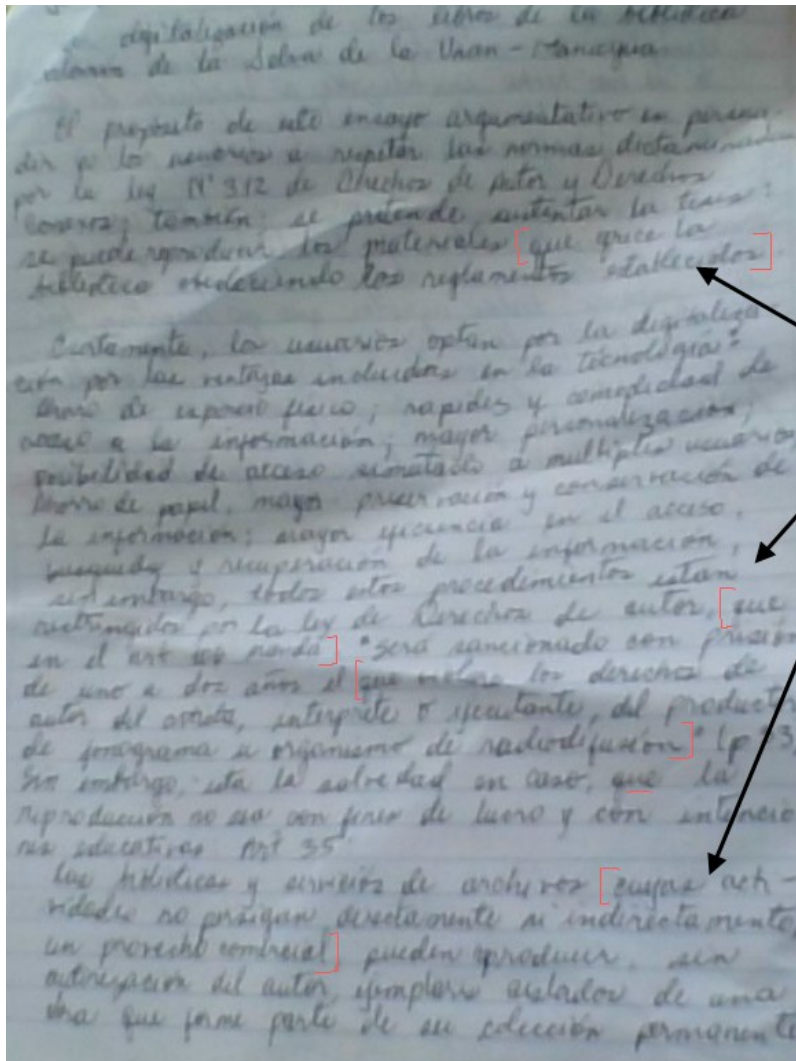 digitalización de los libros de la biblioteca
de la Selva de la Unan-Managua
El propósito de este ensayo argumentativo es persua-
dir a los usuarios a respetar las normas
por la ley N° 312 de Derechos de Autor y Derechos
conexos; también, se pretende sustentar la tesis:
se puede reproducir los materiales [que la
biblioteca obedeciendo los reglamentos establecidos]
Ciertamente, los usuarios optan por la digitaliza-
ción por las ventajas incluidas en la tecnología:
ahorro de espacio físico; rapides y comodidad de
acceso a la información; mayor personalización;
posibilidad de acceso a multiples usuarios,
ahorro de papel, mayor preservación y conservación de
la información; mayor eficiencia en el acceso,
busqueda y recuperación de la información,
sin embargo, todos estos procedimientos estan
restringidos por la ley de Derechos de autor, [que
en el art ] "será sancionado con prisión
de uno a dos años el [que los derechos de
autor del artista, interprete o ejecutante, del productor
de fonograma u organismo de radiodifusión]" (p
Sin embargo, esta la salvedad en caso, que la
reproducción no sea con fines de lucro y con intencio
nes educativas Art 35
Las bibliotecas y servicios de archivos [cuyas acti-
vidades no persigan directamente ni indirectamente,
un provecho comercial] pueden reproducir, sin
autorización del autor, ejemplares aislados de una
obra que forme parte de su colección permanente